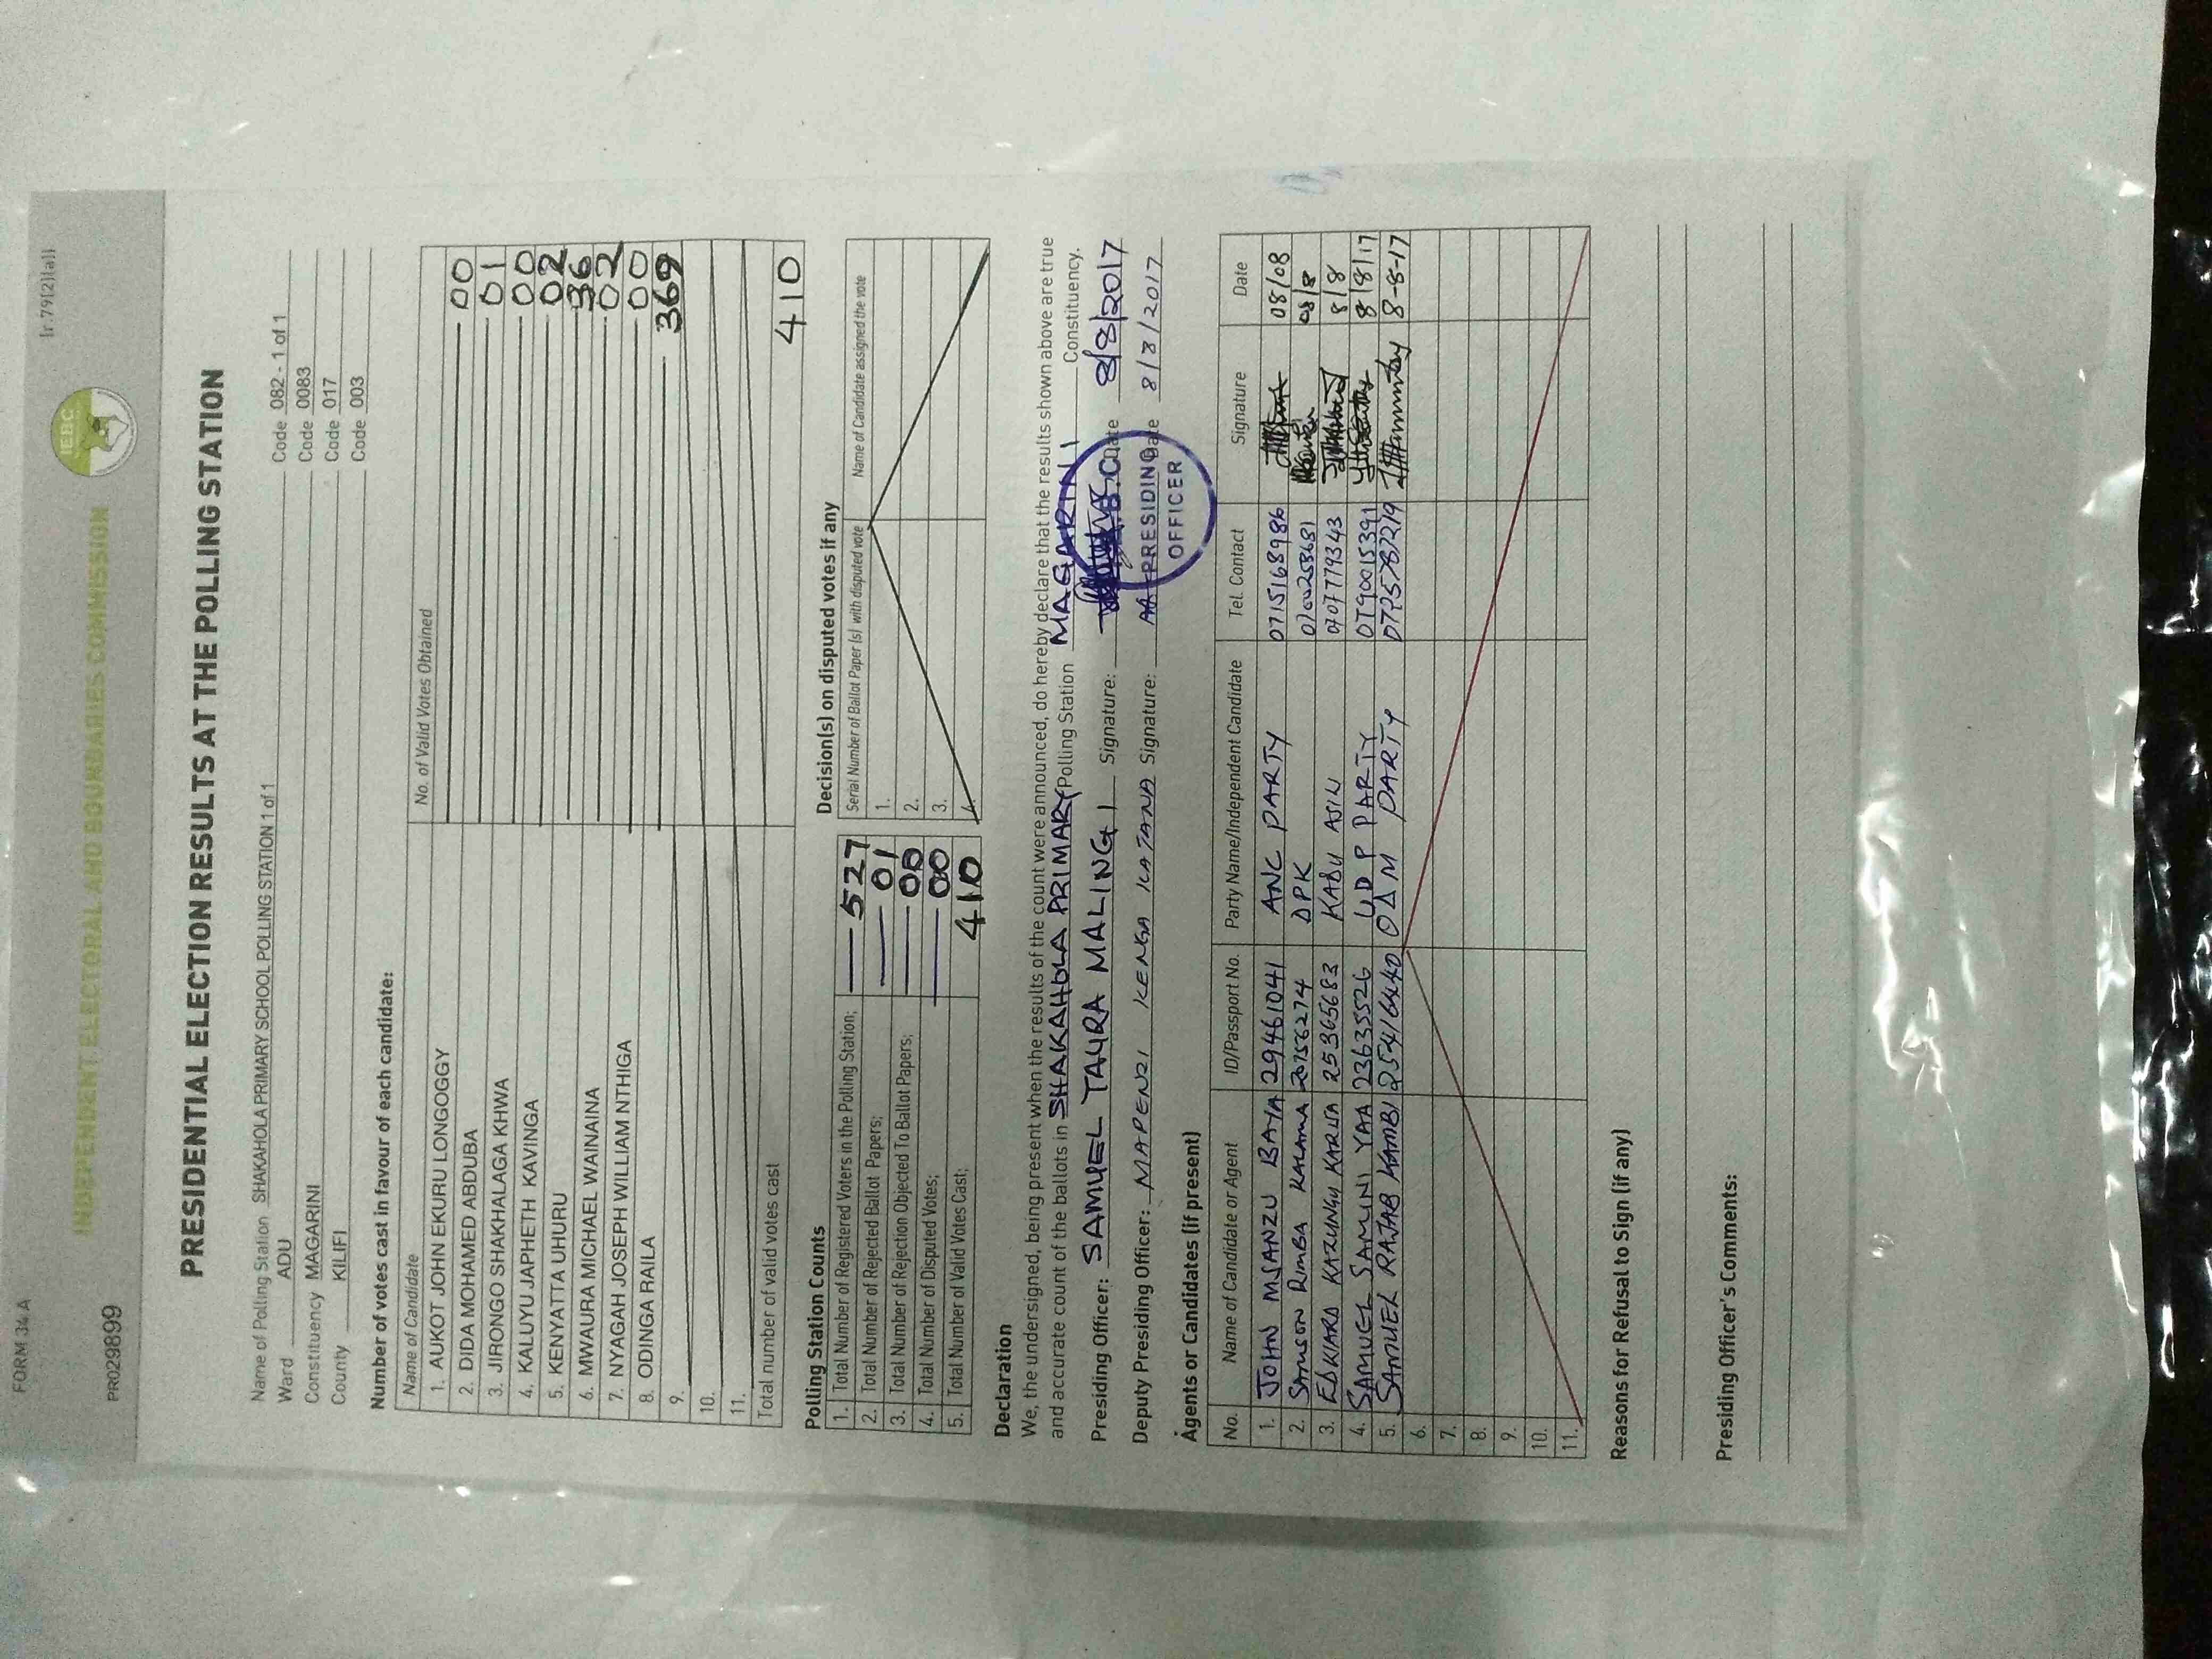 FORM 34 A
Ir.79(2)(a)]
IEBC
INDEPENDENT ELECTORAL AND BOUNDARIES COMMISSION
PR029899
PRESIDENTIAL ELECTION RESULTS AT THE POLLING STATION
Name of Polling Station SHAKAHOLA PRIMARY SCHOOL POLLING STATION 1 of 1 Code 082 - 1 of 1
Ward ADU Code 0083
Constituency MAGARINI Code 017
County KILIFI Code 003
Number of votes cast in favour of each candidate:
Name of Candidate No. of Valid Votes Obtained
1. AUKOT JOHN EKURU LONGOGGY 00
2. DIDA MOHAMED ABDUBA 01
3. JIRONGO SHAKHALAGA KHWA 00
4. KALUYU JAPHETH KAVINGA 02
5. KENYATTA UHURU 36
6. MWAURA MICHAEL WAINAINA 02
7. NYAGAH JOSEPH WILLIAM NTHIGA 00
8. ODINGA RAILA 369
9.
10.
11.
Total number of valid votes cast 410
Polling Station Counts
1. Total Number of Registered Voters in the Polling Station; 527
2. Total Number of Rejected Ballot Papers; 01
3. Total Number of Rejection Objected To Ballot Papers; 00
4. Total Number of Disputed Votes; 00
5. Total Number of Valid Votes Cast; 410
Decision(s) on disputed votes if any
Serial Number of Ballot Paper (s) with disputed vote Name of Candidate assigned the vote
1.
2.
3.
4.
Declaration
We, the undersigned, being present when the results of the count were announced, do hereby declare that the results shown above are true
and accurate count of the ballots in SHAKAHOLA PRIMARY Polling Station MAGARINI Constituency.
Presiding Officer: SAMUEL TAURA MALINGI Signature: Date 8/8/2017
Deputy Presiding Officer: MAPENZI KENGA KATANA Signature: Date 8/8/2017
PRESIDING
OFFICER
Agents or Candidates (if present)
No. Name of Candidate or Agent ID/Passport No. Party Name/Independent Candidate Tel. Contact Signature Date
1. JOHN MSANZU BAYA 29461041 ANC PARTY 0715168986 08/08
2. SAMSON RIMBA KALAMA 20756274 DPK 08/8
3. EDWARD KAZUNGU KARISA 25365683 KADU ASIN 0707779343 8/8
4. SAMUEL SAMINI YAA 23635526 UDP PARTY 0790015391 8/8/17
5. SAMUEL RAJAB KAMBI ODM PARTY 8-8-17
6.
7.
8.
9.
10.
11.
Reasons for Refusal to Sign (if any)
Presiding Officer's Comments: